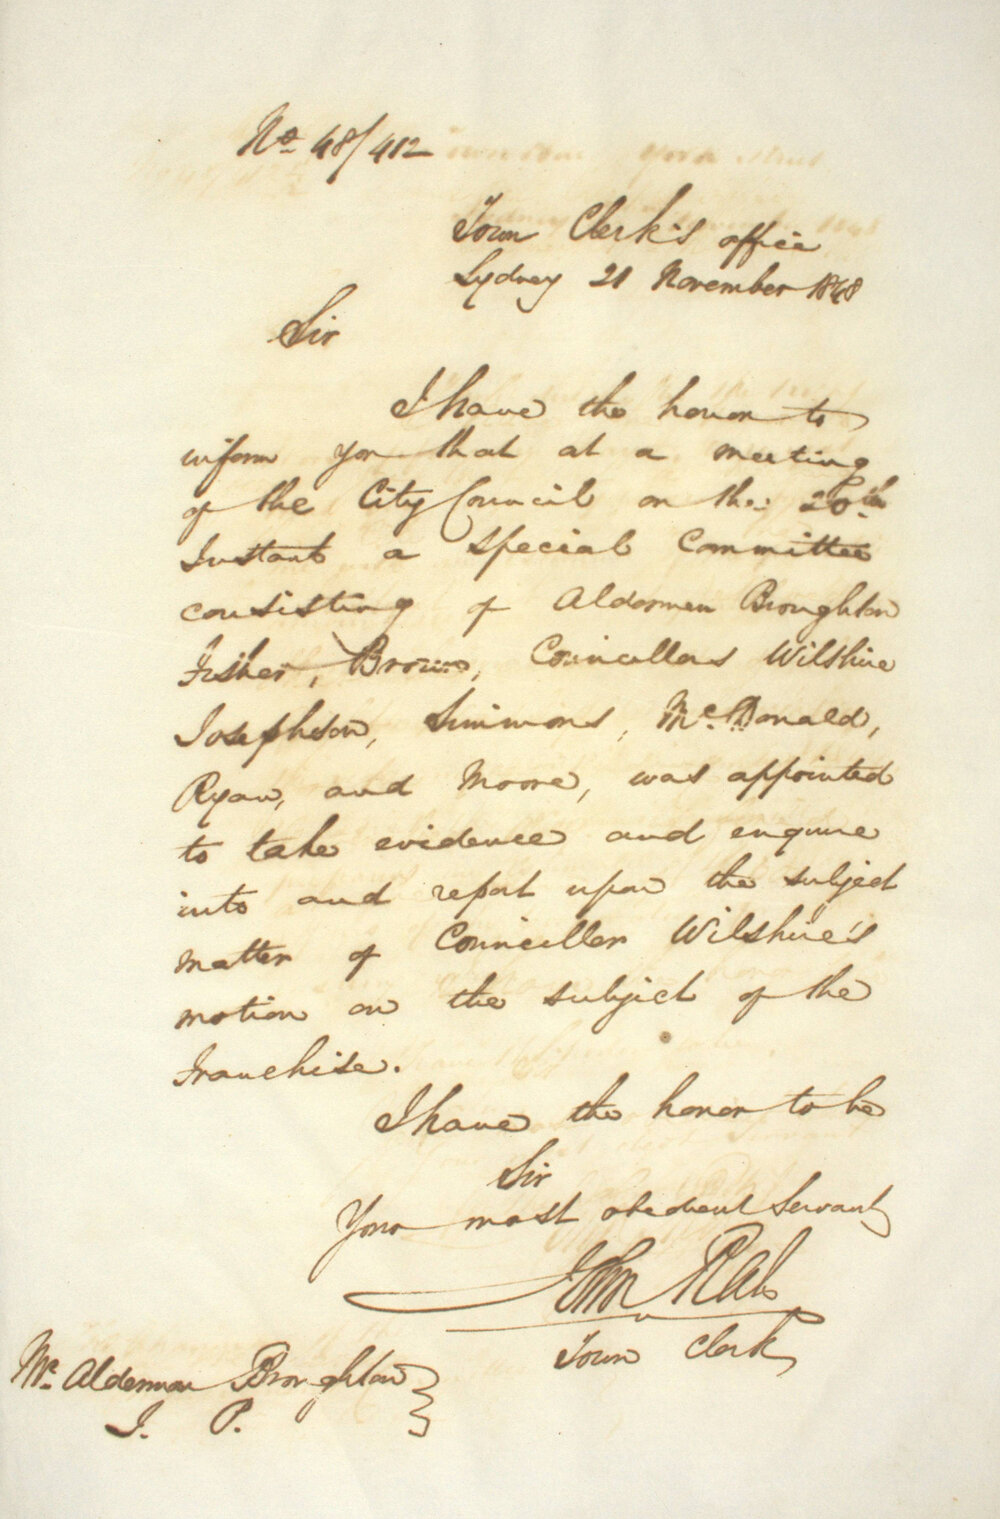 No 48/412
Town Clerk's office
Sydney 21 November 1848
Sir
I have the honor to
inform you that at a meeting
of the City Council on the 20th
Instant a Special Committee
consisting of Aldermen Broughton
Fisher, Brown, Councillors Wilshire
Josephson, Simmons, McDonald,
Ryan, and Moore, was appointed
to take evidence and enquire
into and report upon the subject
matter of Councillor Wilshire's
motion on the subject of the
Franchise.
I have the honor to be
Sir
Your most obedient Servant
John Rae
Town Clerk
Mr. Alderman Broughton
J. P.